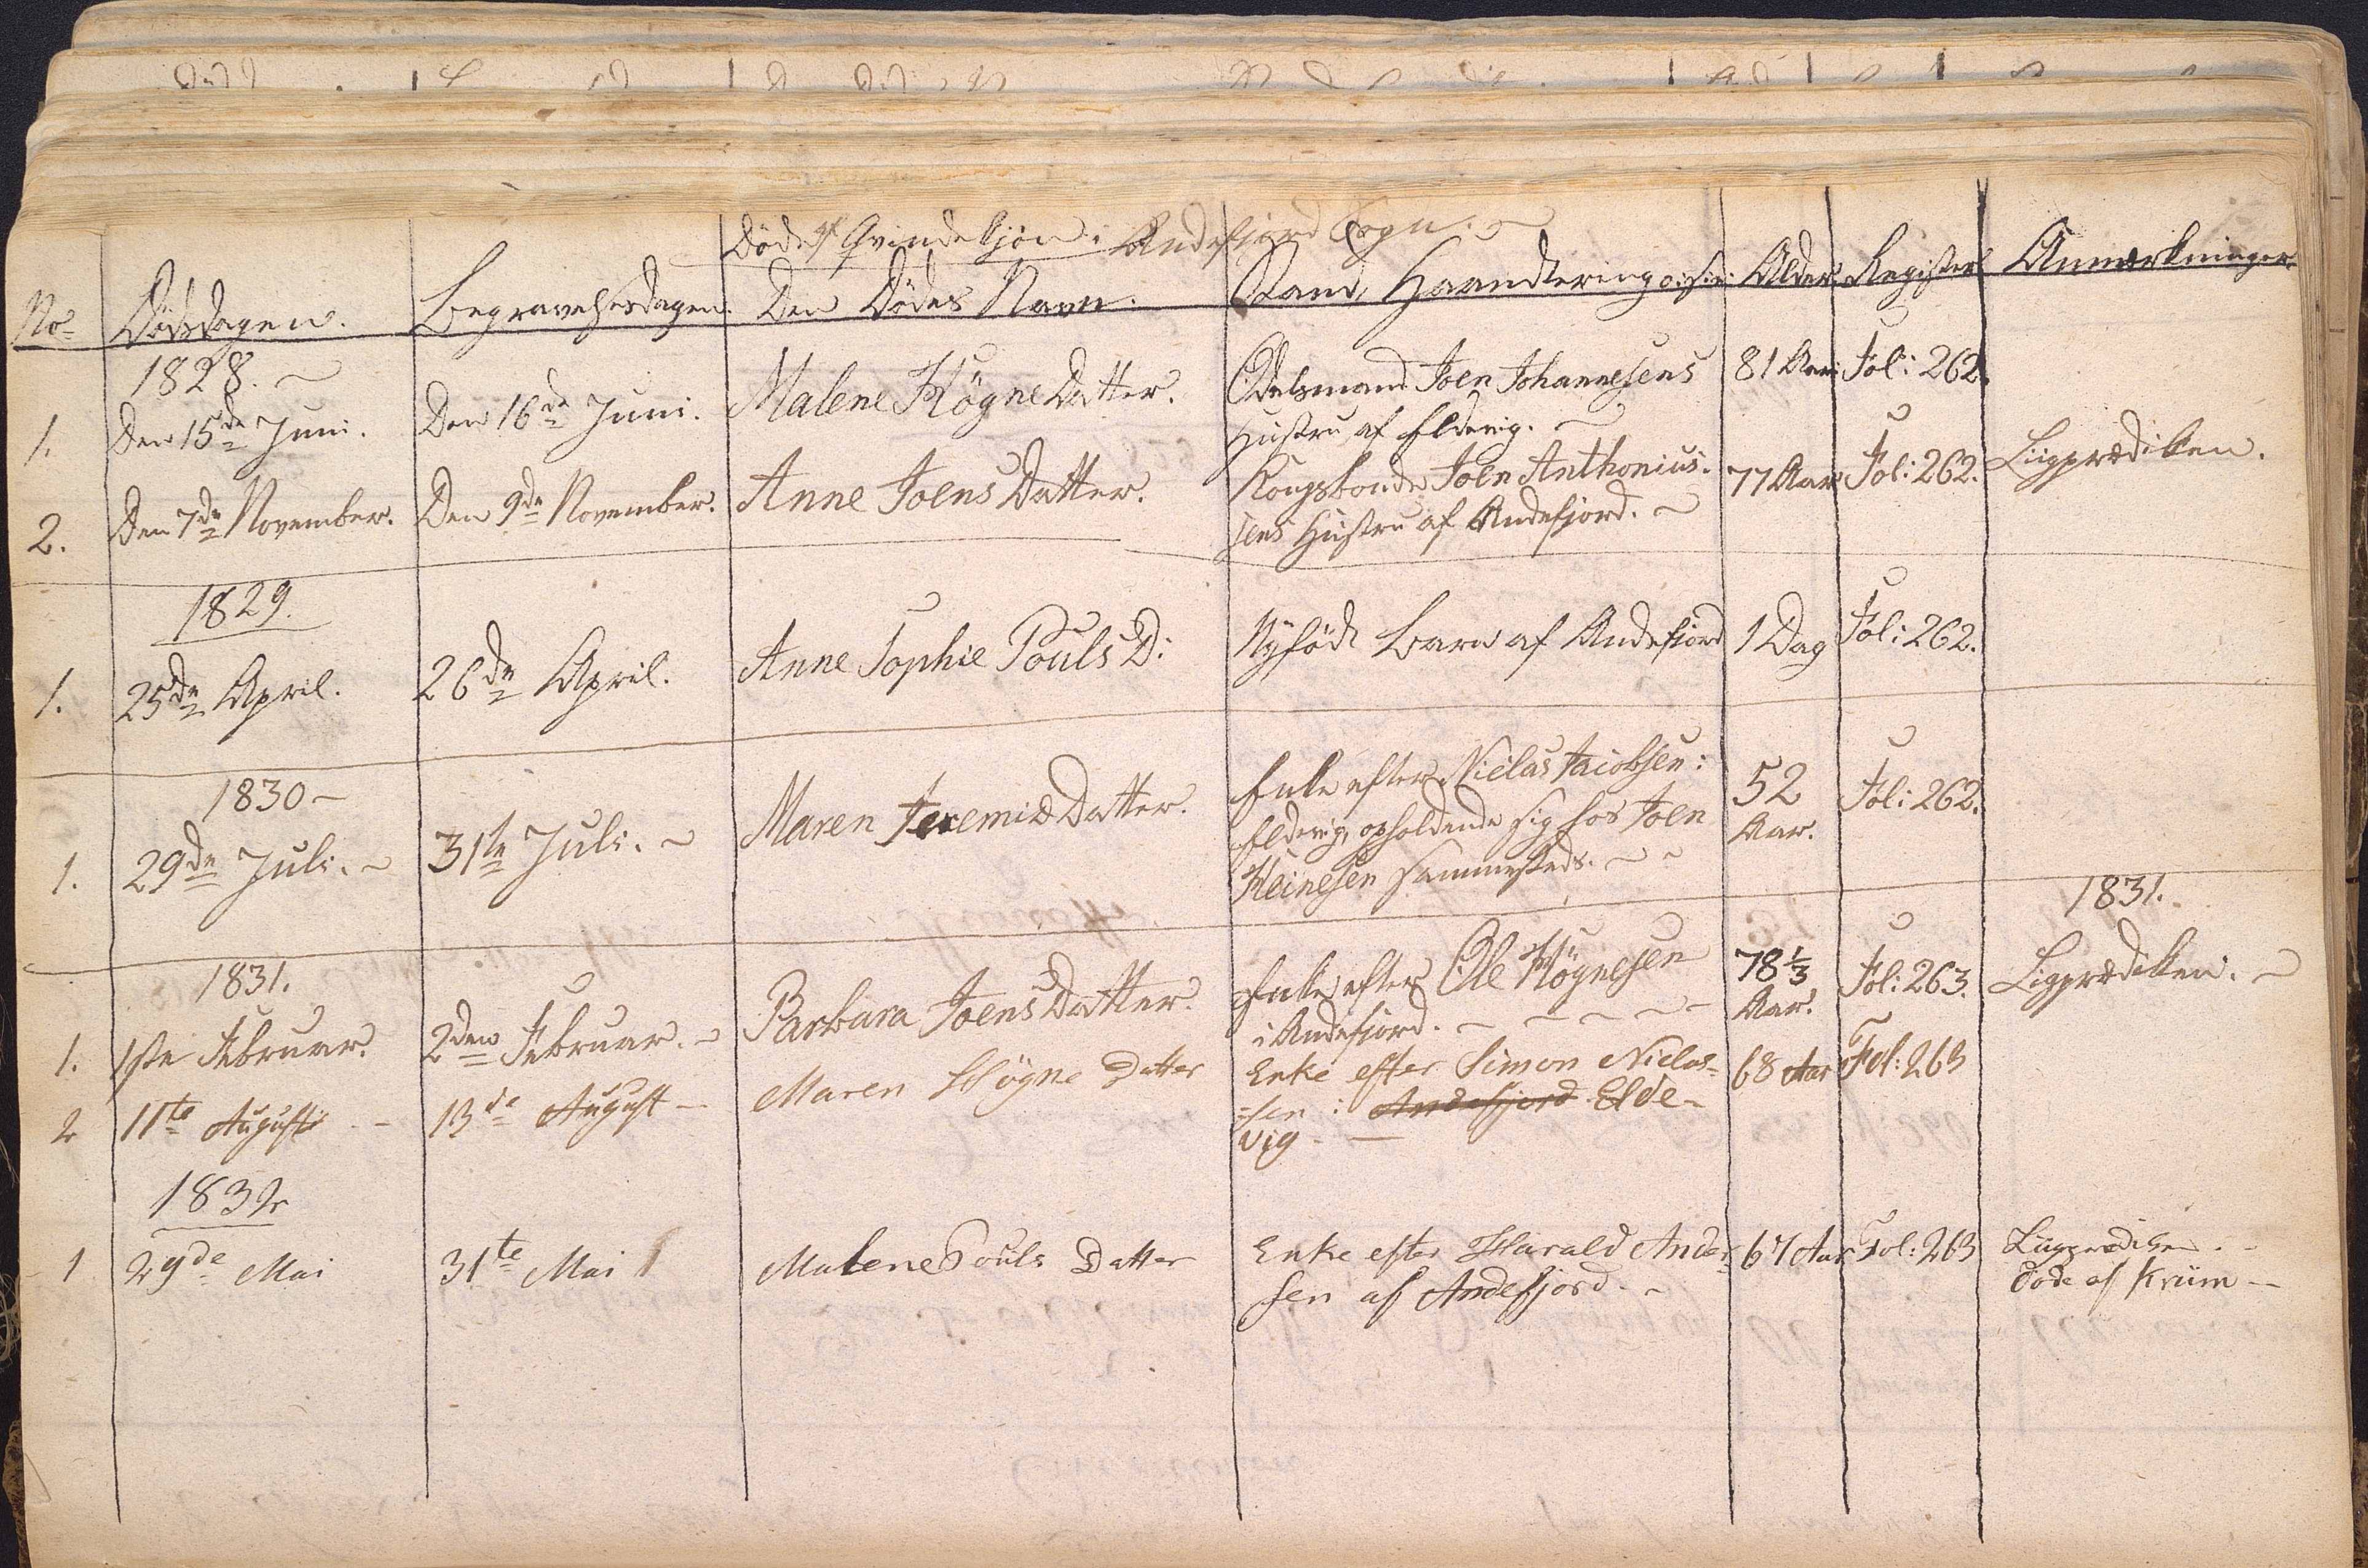 Døde af Qvindekjøn i Andefjord Sogn.
No Dødsdagen. Begravelsesdagen. Den Dødes Navn. Stand, Haandtering o.s.v. Alder. Register Anmærkninger
1828.
1. Den 15de Juni. Den 16de Juni. Malene Högne Datter. Odelsmand Joen Johannesens 81 Aar. Fol: 262.
Hustru af Eldevig.
2. Den 7de November. Den 9de November. Anne Joens Datter. Kongsbonde Joen Anthonius- 77 Aar Fol: 262. Liigprædiken.
sens Hustru af Andefjord.
1829.
1. 25de April. 26de April. Anne Sophie Pouls D: Nyfødt Barn af Andefjord 1 Dag Fol: 262.
1830
1. 29de Juli. 31te Juli. Maren Jeremiæ Datter. Enke efter Niclas Jacobsen i 52 Fol: 262.
Eldevig, opholdende sig hos Joen Aar.
Heinesen sammesteds.
1831. 1831.
1. 1ste Februar. 2den Februar. Barbara Joens Datter. Enke efter Ole Högnesen 78 1/3 Fol: 263. Ligprædiken.
i Andefjord. Aar.
2 11te August 13de August Maren Högne Datter Enke efter Simon Niclas- 68 Aar Fol: 263
=sen i Andefjord Elde-
vig.
1832
1 29de Mai 31te Mai Malene Pouls Datter Enke efter Harald Ander- 67 Aar Fol: 263 Liigprædiken.
sen af Andefjord. døde af Kriim